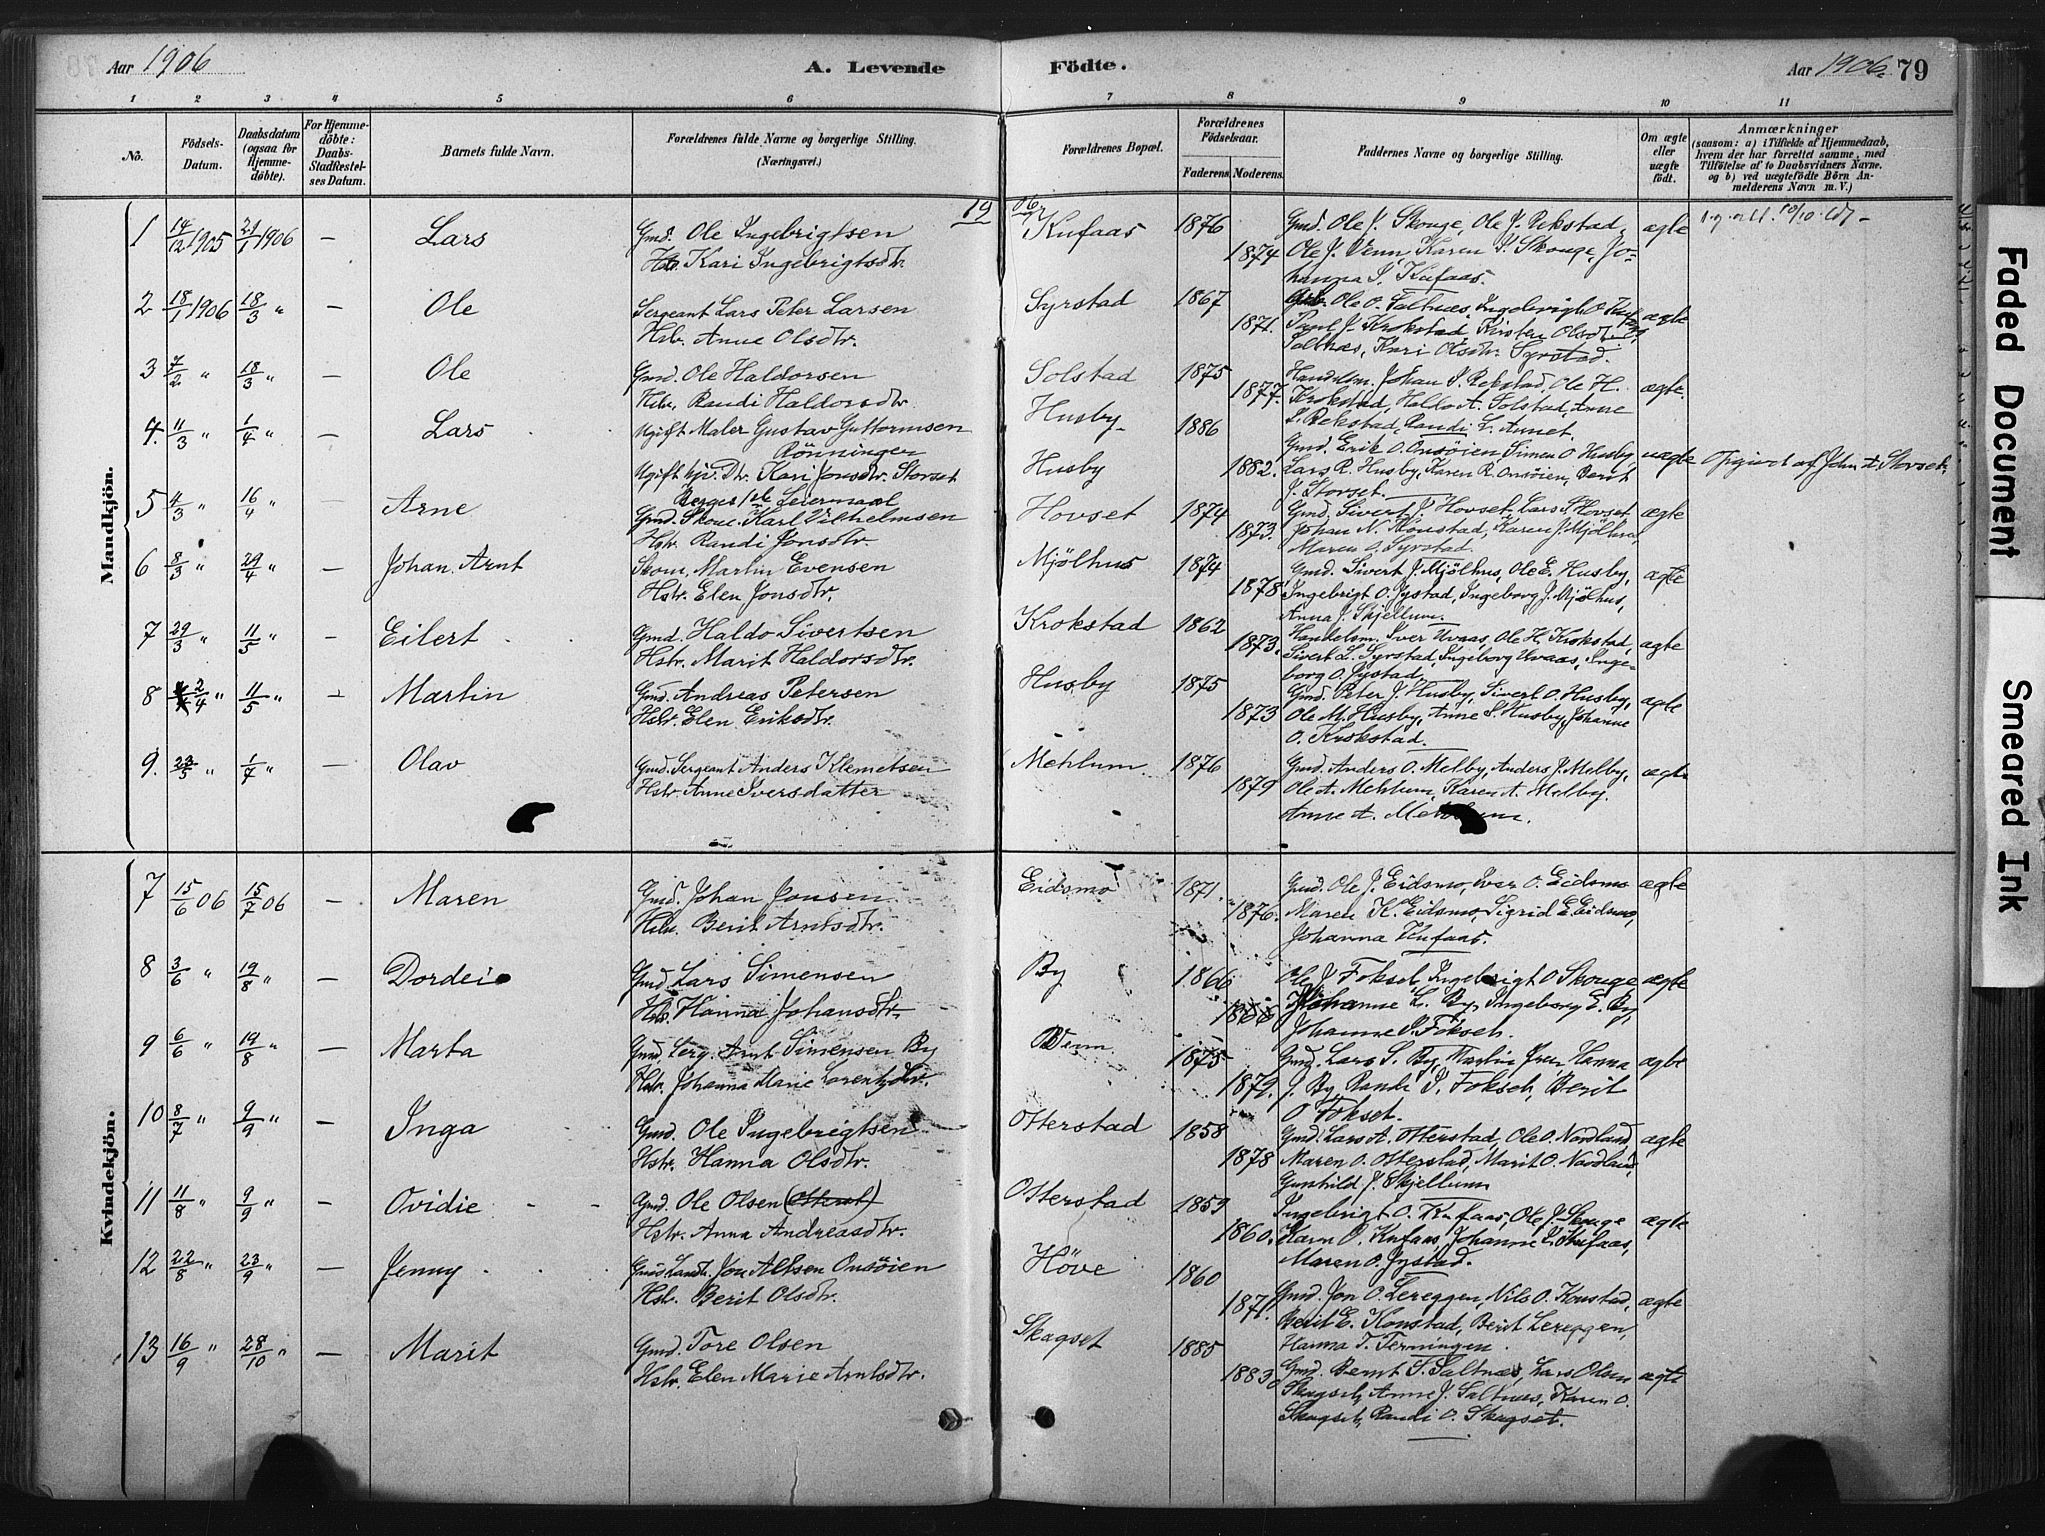 Aar 1906
A. Levende Födte.
Aar 1906. 79
1 2 3 4 5 6 7 8 9 10 11
No.
Födsels-Datum.
Daabsdatum (ogsaa for Hjemme-döbte).
For Hjemme-döbte: Daabs-Stadfæstel-ses Datum.
Barnets fulde Navn.
Forældrenes fulde Navne og borgerlige Stilling.
(Næringsvei.)
Forældrenes Bopæl.
Forældrenes Födselsaar.
Faderens. Moderens.
Faddernes Navne og borgerlige Stilling.
Om ægte eller uægte födt.
Anmærkninger
(saasom: a) i Tilfælde af Hjemmedaab, hvem der har forrettet samme, med Tilföielse af to Daabsvidners Navne. og b) ved uægtefödte Börn An-melderens Navn m. V.)
19 06
Mandkjön.
1 14/12 1905 21/1 1906 — Lars Gmd. Ole Ingebrigtsen Kufaas 1876 Gmd. Ole J. Skouge, Ole J. Rekstad, ægte
Hstr. Kari Ingebrigtsdtr. 1874 Ole J. Venn, Karen J. Skouge, Jo-
hanna J. Kufaas.
2 18/1 1906 18/3 " — Ole Sergeant Lars Peter Larsen Syrstad 1867 Ole O. Saltnæs, Ingebrigt O. ægte
Hstr. Anne Olsdtr. 1871. Paul J. Krokstad, Kirsten Olsdtr.
Saltnæs, Kari Olsdtr. Syrstad.
3 7/2 " 18/3 " — Ole Gmd. Ole Haldorsen Solstad 1875 Handelsm. Johan J. Rekstad, Ole H. ægte.
Hstr. Randi Haldorsdtr. 1877. Krokstad, Haldo A. Solstad, Anne
L. Rekstad, Randi L. Annet.
4. 11/3 " 1/4 " — Lars Ugift Maler Gustav Guttormsen Husby 1886 Gmd. Erik O. Onsöien, Simen O. Husby uægte Opgivet af John A. Storset.
Rönningen
Ugift Pige Dtr. Kari Jonsdtr. Storset Husby 1882. Lars R. Husby, Karen R. Onsöien, Berit
Leiermaal J. Storset.
5 4/3 " 16/4 " — Arne Gmd. Skom. Karl Vilhelmsen Hovset 1874 Gmd. Sivert J. Hovset, Lars J. Hovset ægte
Hstr. Randi Jonsdtr. 1873. Johan N. Kònstad, Karen J. Mjölhus,
Maren O. Syrstad.
6 8/3 " 29/4 " — Johan Arnt Skom. Martin Evensen Mjölhus 1874 Gmd. Sivert J. Mjölhus, Ole E. Husby, ægte
Hstr. Elen Jonsdtr. 1878 Ingebrigt O. Jystad, Ingeborg J. Mjölhus,
Anna J. Skjellum.
7 29/3 " 11/5 " — Eilert Gmd. Haldo Sivertsen Krokstad 1862 Handelsm. Iver Uvaas, Ole H. Krokstad, ægte
Hstr. Marit Haldorsdtr. 1873. Sivert L. Syrstad, Ingeborg Uvaas, Inge-
borg O. Jystad.
8 2/4 " 11/5 " — Martin Gmd. Andreas Petersen Husby 1875 Gmd. Peter J. Husby, Sivert O. Husby, ægte
Hstr. Elen Eriksdtr. 1873 Ole M. Husby, Anne S. Husby, Johanne
O. Krokstad.
9. 23/5 " 1/7 — Olav Gmd. Sergeant Anders Klemetsen Mehlum. 1876 Gmd. Anders O. Melby, Anders J. Melby, ægte
Hstr. Anne Iversdatter 1879 Ole A. Mehlum, Karen A. Melby.
Anne A. Mehlum.
Kvindekjön.
7 15/6 06 15/7 06 — Maren Gmd. Johan Jonsen Eidsmo 1871. Gmd. Ole J. Eidsmo, Iver O. Eidsmo ægte
Hstr. Berit Arntsdtr. 1876. Maren K. Eidsmo, Sigrid E. Eidsmo,
Johanna Kufaas.
8 3/6 " 19/8 " — Dordei Gmd. Lars Simensen By 1866 Ole J. Fokset, Ingebrigt O. Skouge ægte
Hstr. Hanna Johansdtr. 1866 Johanne L. By, Ingeborg E. By,
Johanne J. Fokseh.
9 6/6 " 19/8 " — Marta Gmd. Serg. Arnt Simensen By 1875 Gmd. Lars S. By, Martin Hanna ægte
Hstr. Johanna Marie Lorentsdtr. 1879. J. By, Randi J. Fokseh, Berit
O. Fokset.
10 8/7 " 9/9 " — Inga Gmd. Ole Ingebrigtsen Otterstad 1858 Gmd. Lars A. Otterstad, Ole O. Nordland, ægte
Hstr. Hanna Olsdtr. 1878 Maren O. Otterstad, Marit O. Nordland,
Gunhild J. Skjellum
11 11/8 " 9/9 " — Ovidie Gmd. Ole Olsen Otterstad 1859 Ingebrigt O. Kufaas, Ole J. Skouge ægte
Hstr. Anna Andreasdtr. 1860. Karn O. Kufaas, Johanne J. Kufaas,
Maren O. Jystad.
12 22/8 " 23/9 " — Jenny Jon Altsen Onsöien Höve 1860 Gmd. Jon O. Lereggen, Nils O. Konstad, ægte
Hstr. Berit Olsdtr. 1871. Berit E. Konstad, Berit Lereggen,
Hanna T. Ferningen.
13 16/9 " 28/10 " — Marit Gmd. Tore Olsen Skagset 1885 Gmd. Bernt S. Saltnæs, Lars Olsen ægte
Hstr. Elen Marie Arntsdtr. 1883 Skagset, Anne J. Saltnæs, Karen O.
Skagset, Randi O. Skagset.
Faded Document
Smeared Ink